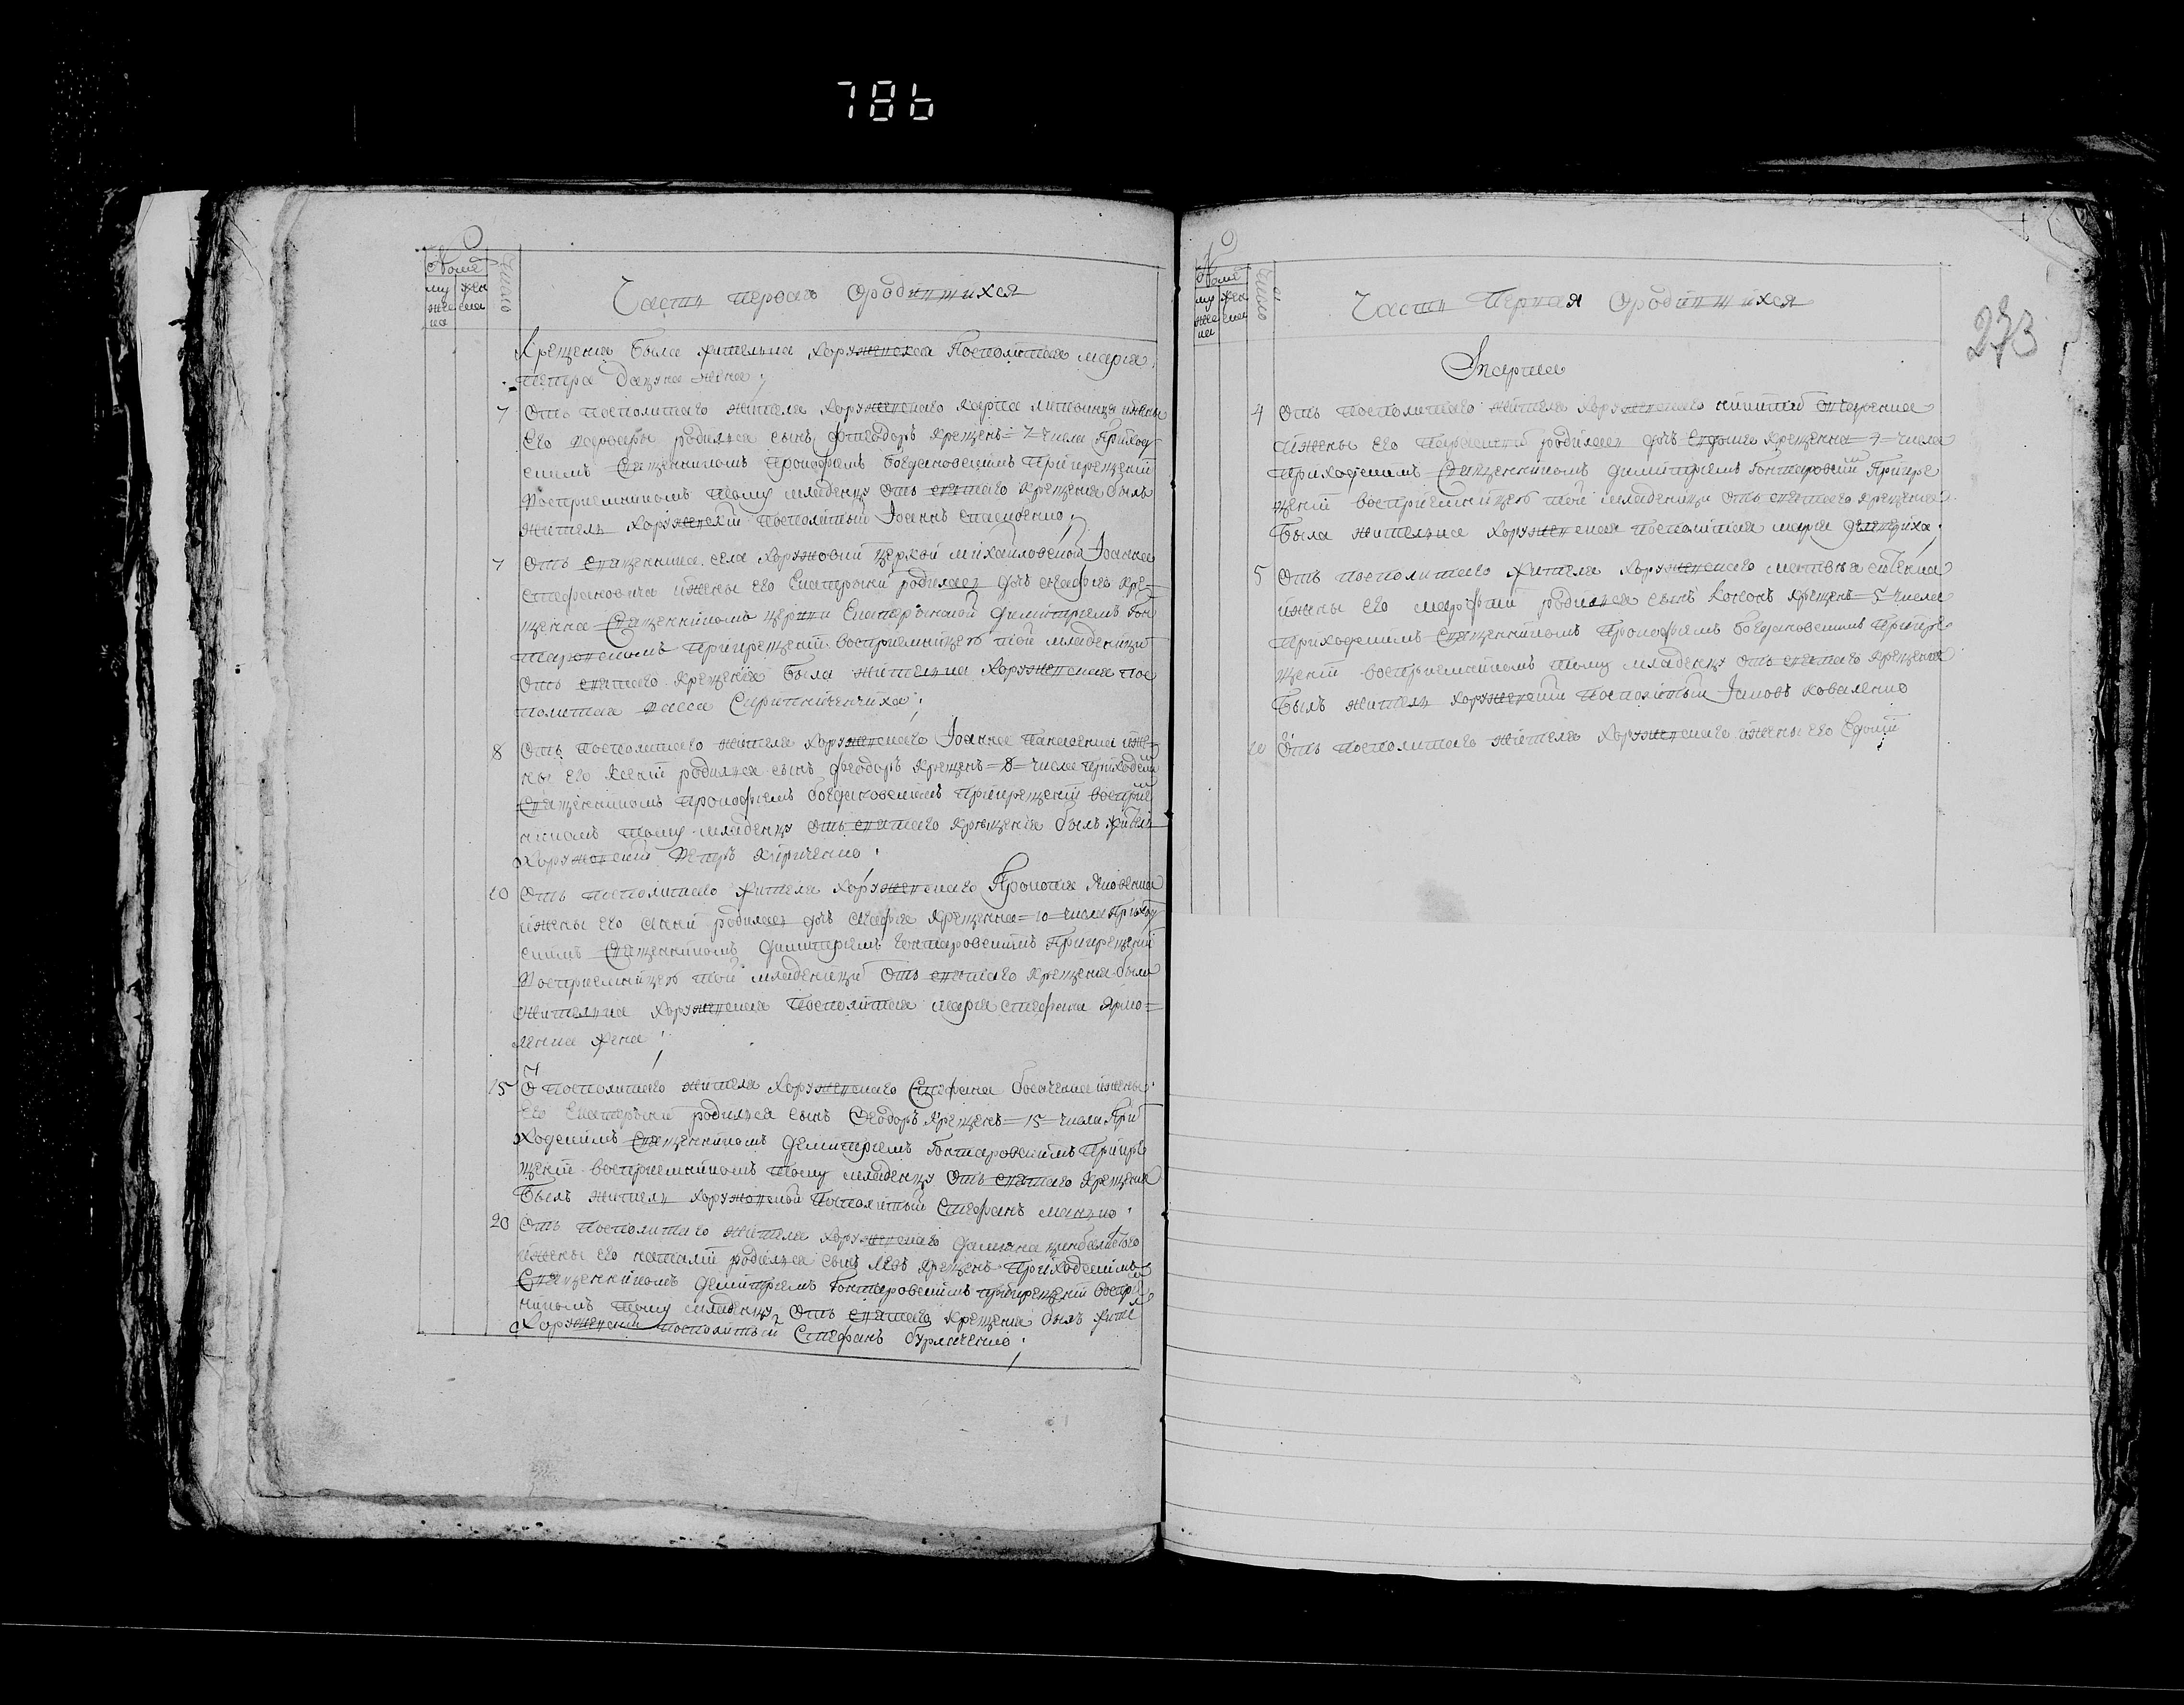 786
Номеръ
му же
жес нса
ка
Число
Часть перваѧ ѡродившихсѧ
Крещениѧ была жителка хоружевскаѧ посполитаѧ мариѧ
петра дацуна жена;
7 Отъ посполитаго жителѧ хоружевскаго карпа литвинца ижени
его варвары родилсѧ сынъ Ѳеодоръ крещенъ = 7 = числа приход
скимъ свѧщенникомъ прокофиемъ богдановскимъ прикрещеніи
воспріемникомъ тому младенцу отъ свѧтаго крещениѧ былъ
житель хоружевскій посполитый Іоаннъ
7 Отъ свѧщенника села хоружовки церкви михайловской Іоанна
стефановича ижены его Екатерыни родиласъ дочь агафиѧ кре=
щенна свѧщенникомъ церкви Екатерынской димитриемъ Гон
таровскимъ прикрещеніи восприемницею той младеницѣ
отъ свѧтаго крещеніѧ была жителка хоружевскаѧ пос
политаѧ васса
8 Отъ посполитаго жителѧ хоружевскаго Іоанна панасенка иже=
ны его ксеніи родилсѧ сынъ Ѳеодоръ крещенъ = 8 = числа приходским
свѧщенникомъ прокофиемъ богдановскимъ прикрещеніи воспріем
никомъ тому младенцу отъ свѧтаго крещеніѧ былъ житель
хоружевскій петръ кириченко;
10 Отъ посполитаго жителѧ хоружевскаго Прокопіѧ Яковенка
ижены его анни родиласъ дочь агафиѧ крещенна = 10 = числа приход
скимъ свѧщенникомъ димитриемъ Гонтаровскимъ прикрещеніи
воспріемницею той младеницѣ отъ свѧтаго крещениѧ была
жителка хоружевскаѧ посполитаѧ мариѧ стефана Ярмо=
ленка жена;
15 Ѿ посполитаго жителѧ хоружевскаго Стефана ижены
его Екатерыни родилсѧ сынъ Ѳеодоръ крещенъ = 15 = числа при
ходскимъ свѧщенникомъ димитриемъ Гонтаровскимъ прикре
щеніи воспріемникомъ тому младенцу отъ свѧтаго крещениѧ
былъ житель хоружовскій посполитый Стефанъ
20 Отъ посполитаго жителѧ хоружевскаго даміѧна
ижены его наталіи родилсѧ сынъ левъ крещенъ приходскимъ
свѧщенникомъ димитриемъ Гонтаровскимъ прикрещеніи воспріем
никомъ тому младенцу отъ свѧтаго крещениѧ былъ жител
хоружевскій посполитый Стефанъ бурлаченко;
Номеръ
му же
жес нса
ка
Число
Часть первая ѡродившихся
273
Ѵ марта
4 Отъ посполитаго жителѧ хоружевскаго никити
ижены его параскевіи родиласъ дочь Евдокиѧ крещенна = 4 = числа
приходскимъ свѧщенникомъ димитриемъ Гонтаровским прикре
щеніи воспріемницею той младеници отъ свѧтаго крещениѧ
была жителка хоружевскаѧ посполитаѧ мариѧ
5 Отъ посполитаго жителѧ хоружевскаго матвѣѧ
ижены его марфии родилсѧ сынъ Кононъ крещенъ = 5 = числа
приходскимъ свѧщенникомъ прокофиемъ богдановскимъ прикре
щеніи воспріемникомъ тому младенцу отъ свѧтаго крещениѧ
былъ житель хоружевскій посполитый Іаковъ коваленко
10 Отъ посполитаго жителѧ хоружевскаго ижены его Евдокіи